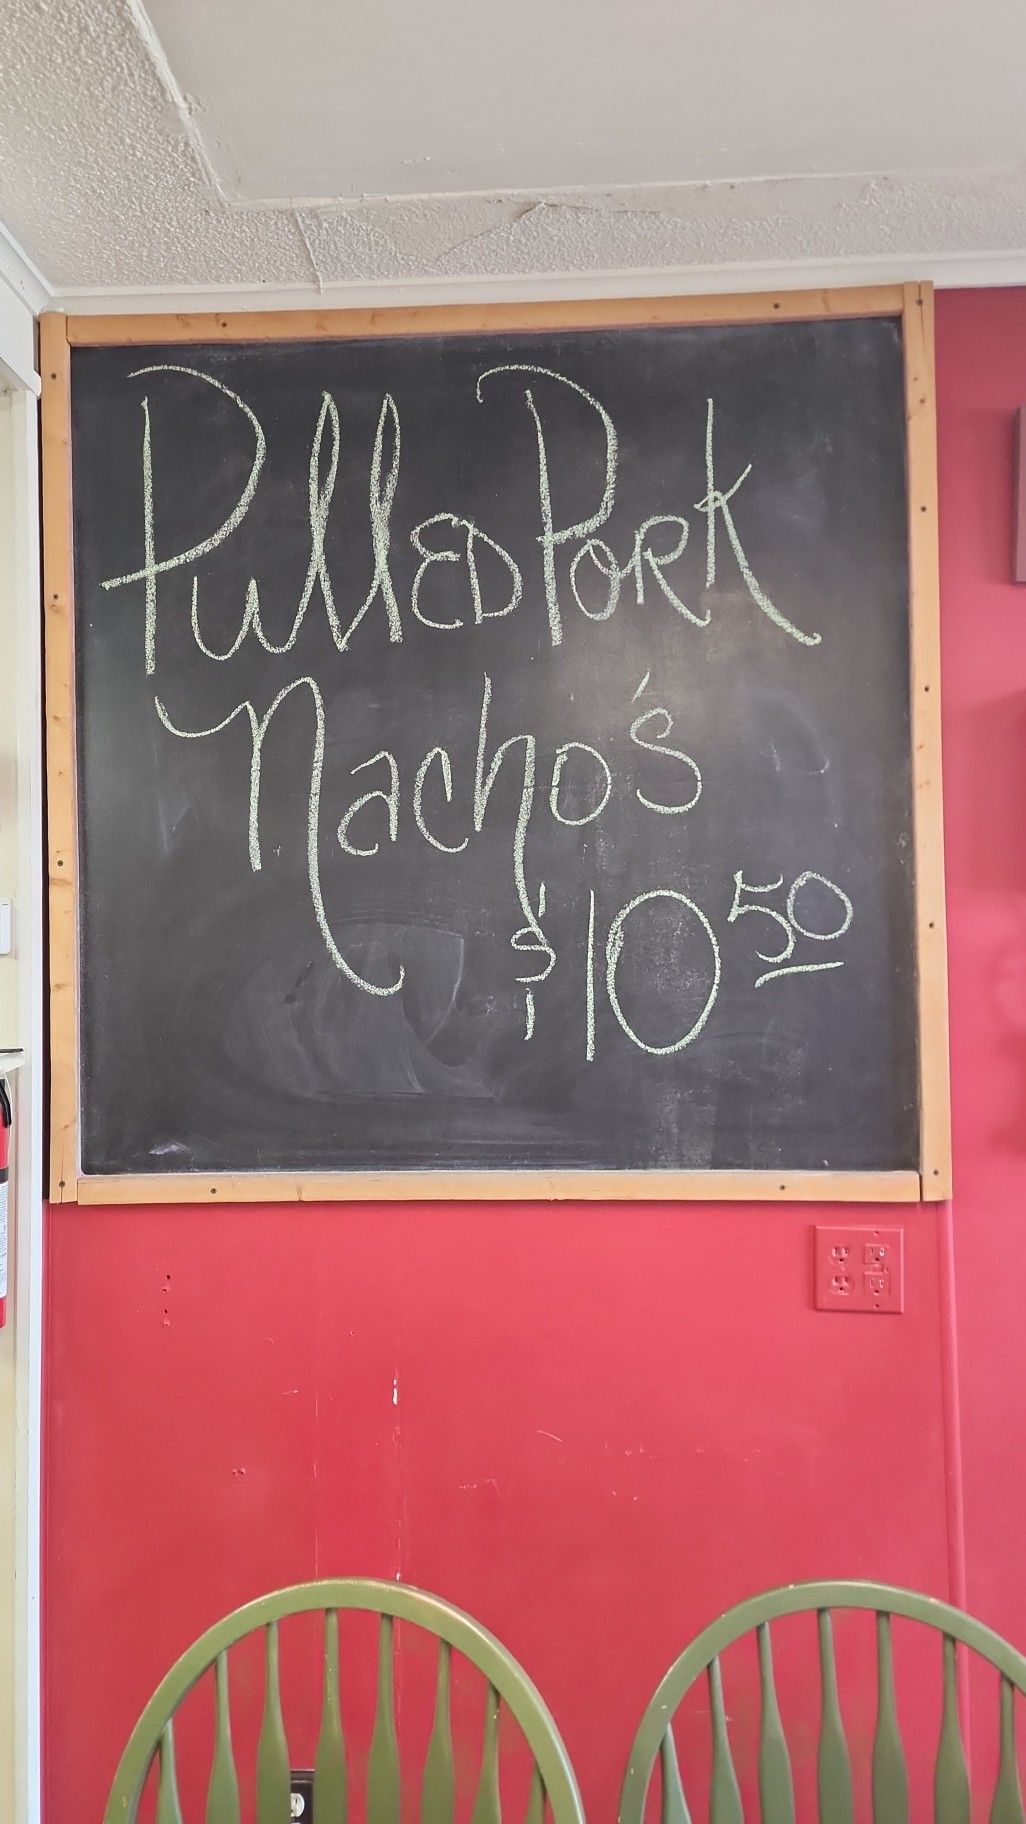 PullED PORK
Nacho's
$10 50